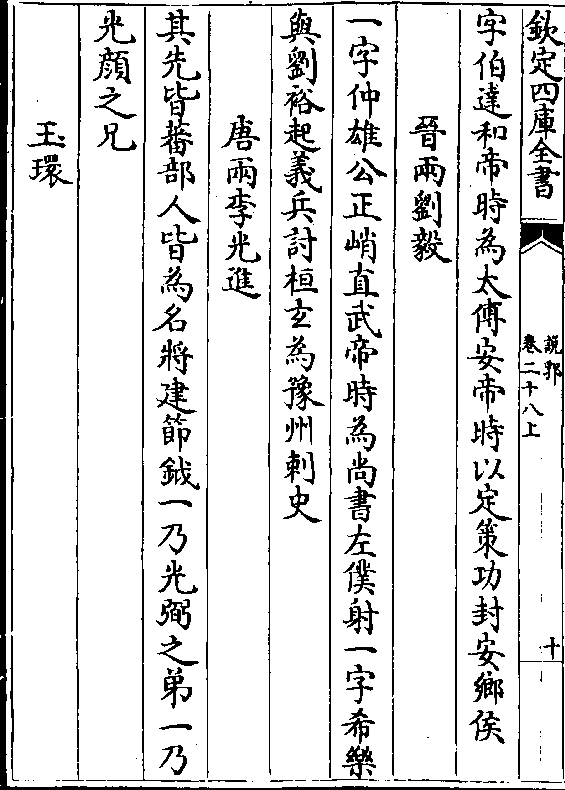 欽定四庫全書
說郛
卷二十八上
十
字伯達和帝時為太傅安帝時以定策功封安鄉侯
晉兩劉毅
一字仲雄公正峭直武帝時為尚書左僕射一字希樂
與劉裕起義兵討桓玄為豫州刺史
唐兩李光進
其先皆蕃部人皆為名將建節鉞一乃光弼之弟一乃
光顔之兄
玉環